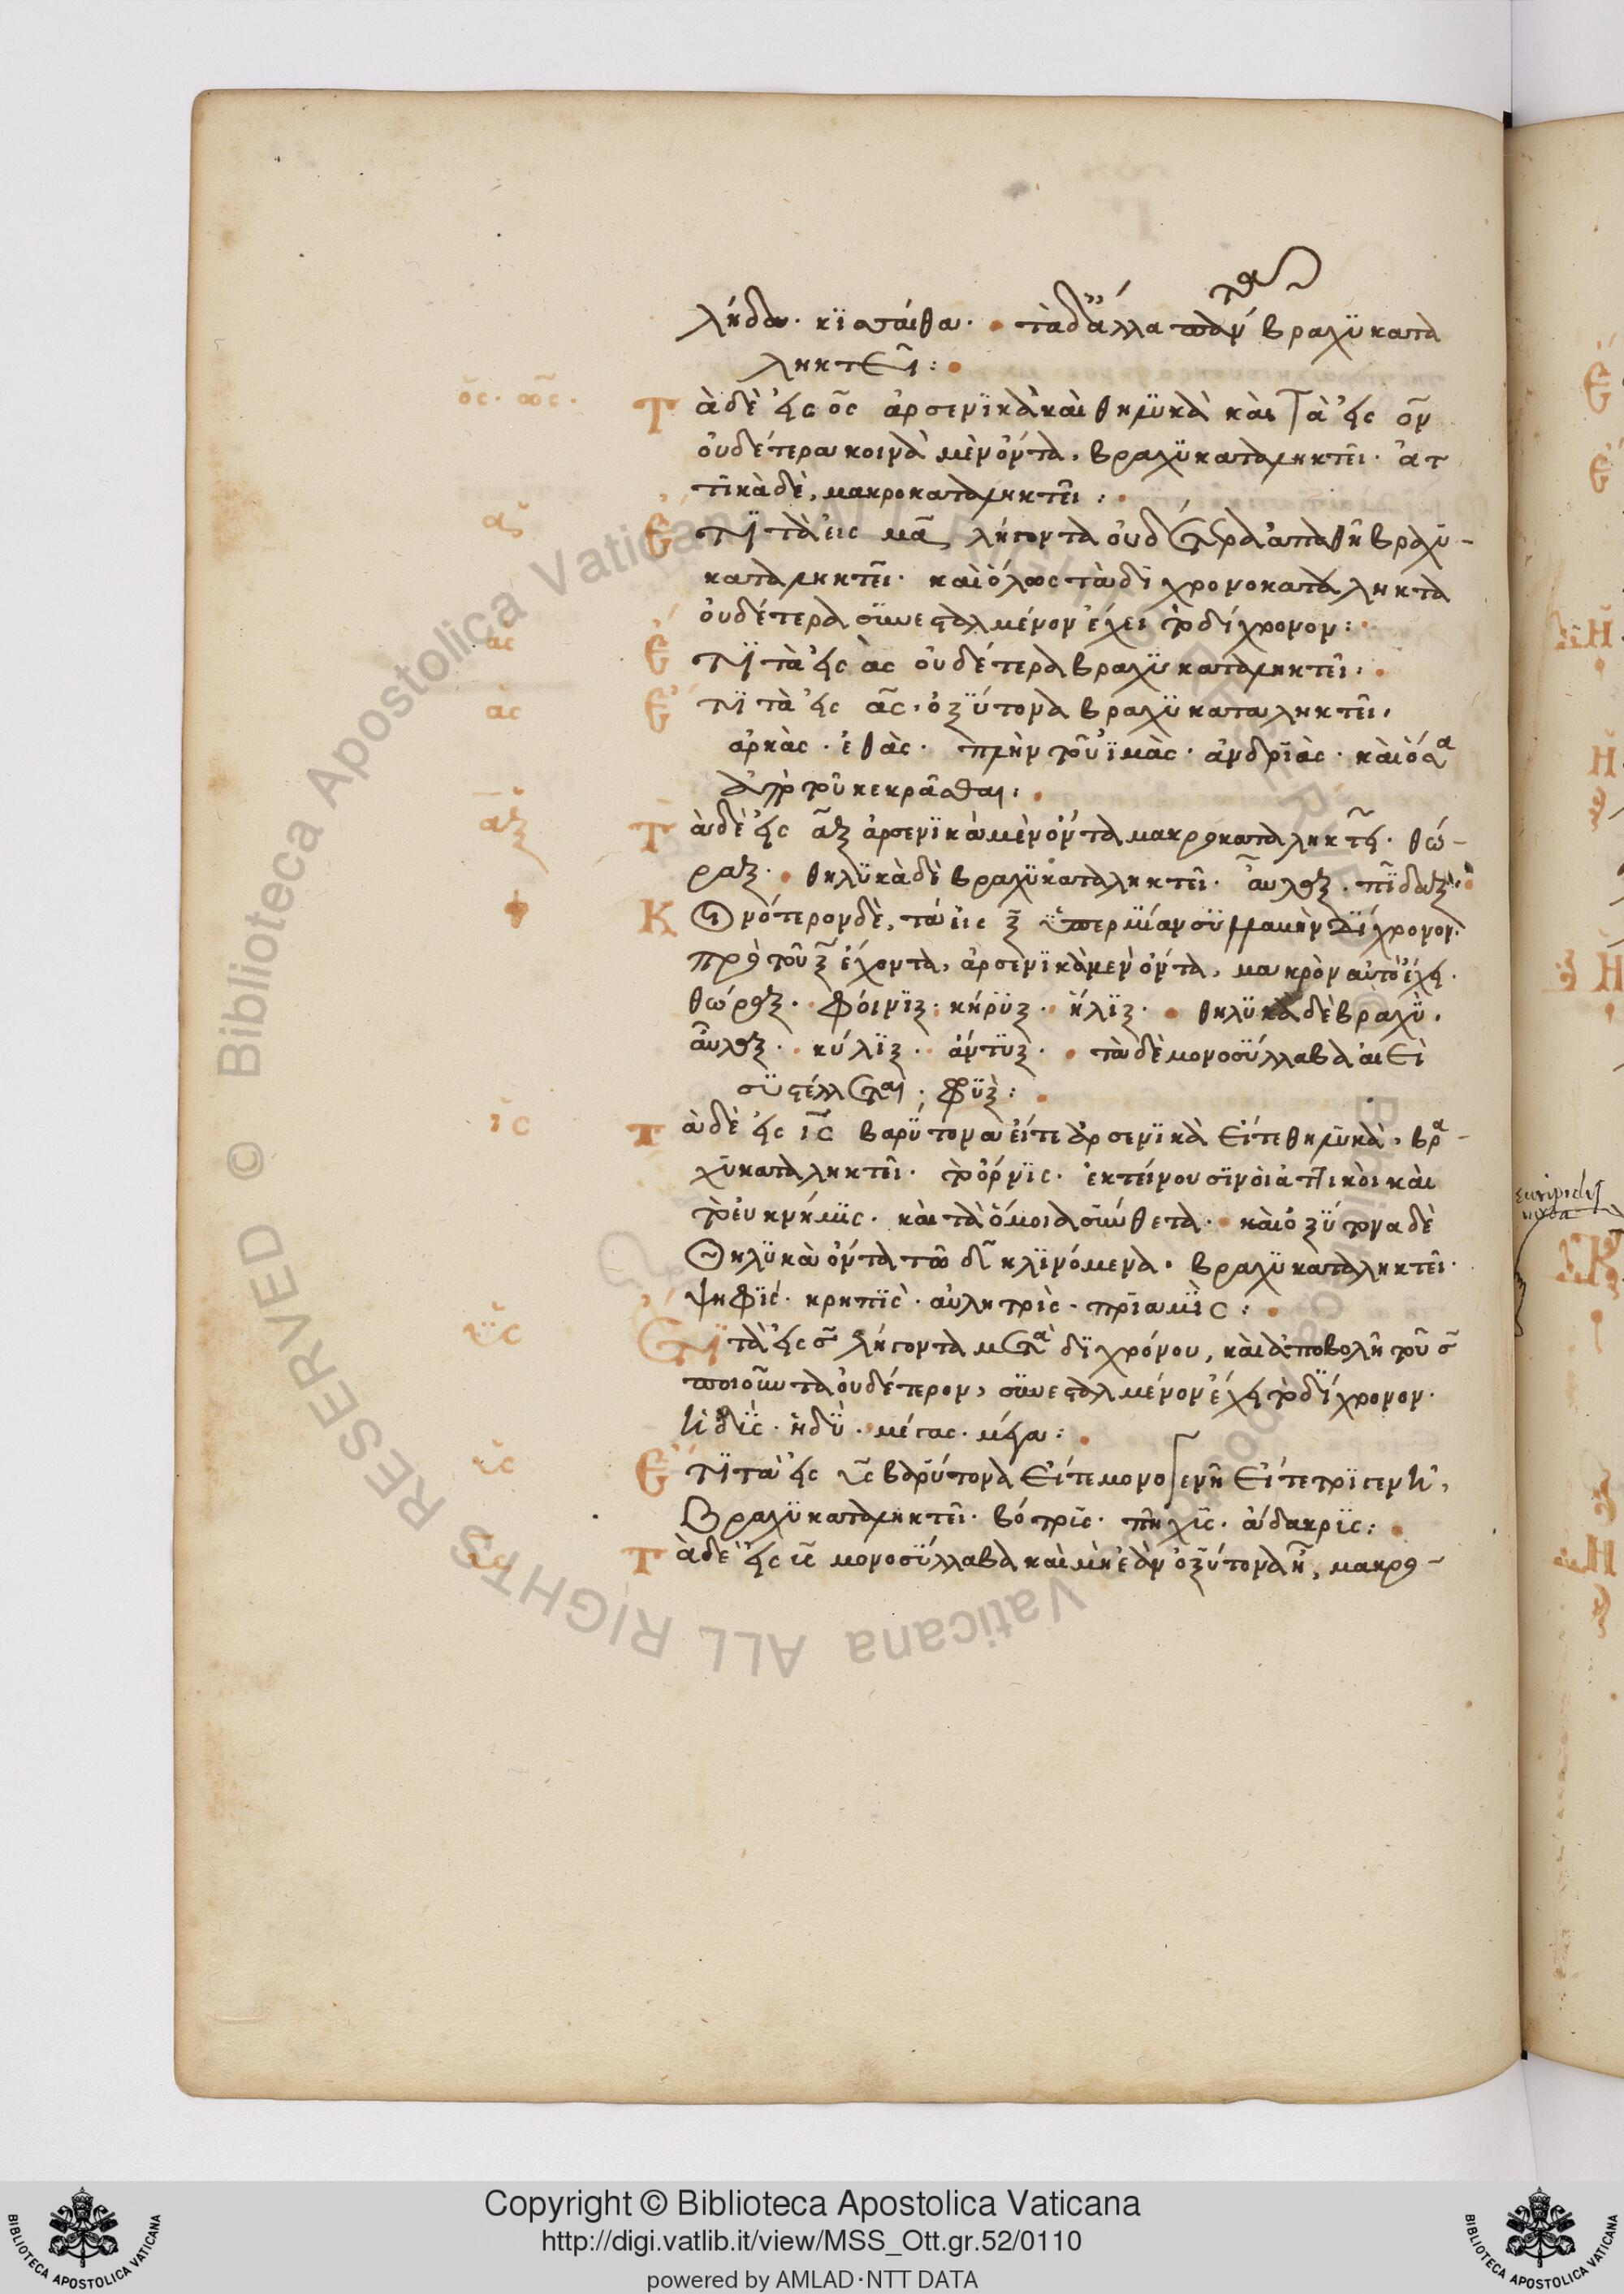 λήδα. κϊσσάιθα. τὰ δ' ἄλλα πάν(τα) βραχϋκατα
ληκτεῖ:
ος. ως. Τὰ δὲ εἰς ος ἀρσενϊκὰ καὶ θηλϋκὰ καὶ τὰ εἰς ον
οὐδέτερα κοινὰ μὲν ὄντα, βραχϋκαταληκτεῖ. ἀτ
τϊκὰ δὲ, μακροκαταληκτεῖ:
Ἔτϊ τὰ εἰς μα λήγοντα οὐδέτερα ἀπαθῆ βραχϋ-
καταληκτεῖ. καὶ ὅλως τὰ δϊχρονοκατάληκτα
οὐδέτερα σϋνεσταλμένον ἔχει τὸ δίχρονον:
ας Ἔτϊ τὰ εἰς ας οὐδέτερα βραχϋκαταληκτεῖ.
ας Ἔτϊ τὰ εἰς ας ὀξΰτονα βραχϋκαταληκτεῖ.
ἀρκὰς. ἐθὰς. πλὴν τοῦ ϊμὰς. ἀνδρϊὰς. καὶ ὅσα
ἀπὸ τοῦ κεκρᾶσθαι.
αξ Τὰ δὲ εἰς αξ ἀρσενϊκὰ μὲν ὄντα μακροκαταληκτεῖ. θώ-
ραξ. θηλϋκὰ δὲ βραχϋκαταληκτεῖ. αὖλαξ. πῖδαξ.
Κοινότερον δὲ, τὰ εἰς ξ ὑπὲρ μίαν σϋλλαβὴν δίχρονον
πρὸ τοῦ ξ ἔχοντα, ἀρσενϊκὰ μὲν ὄντα, μακρὸν αὐτὸ ἔχει.
θώραξ. φοίνϊξ. κήρϋξ. ἧλϊξ. θηλϋκὰ δὲ βραχϋ.
αὖλαξ. κύλϊξ. ἄντϋξ. τὰ δὲ μονοσϋλλαβα ἀεὶ
σϋστέλλεται. φϋξ:
ις Τὰ δὲ εἰς ις βαρϋτονα εἴτε ἀρσενϊκὰ εἴτε θηλϋκὰ, βρα-
χϋκαταληκτεῖ. τὸ ὄρνϊς. ἐκτείνουσϊν οἱ ἀττϊκοὶ καὶ
τὸ εὐκνήμϊς. καὶ τὰ ὅμοια σϋνθετα. καὶ ὀξΰτονα δὲ
θηλϋκὰ ὄντα τῶ δ κλϊνόμενα, βραχϋκαταληκτεῖ.
ψηφϊς. κρηπϊς. αὐλητρὶς. πρϊαμϊς:
υς Ἔτϊ τὰ εἰς σ λήγοντα μετὰ δϊχρόνου, καὶ ἀποβολῆ τοῦ σ
ποιοῦντα οὐδέτερον, σϋνεσταλμένον ἔχει τὸ δίχρονον.
ἡδϋς. ἡδϋ. μέγας. μέγα:
υς Ἔτϊ τὰ εἰς υς βαρΰτονα εἴτε μονογενῆ εἴτε τρϊγενῆ,
βραχϋκαταληκτεῖ. βότρϋς. πῆχϋς. ἄδακρϋς:
Τὰ δὲ εἰς υς μονοσϋλλαβα καὶ μὴ ἐὰν ὀξΰτονα ἦ, μακρο-
Copyright © Biblioteca Apostolica Vaticana
http://digi.vatlib.it/view/MSS_Ott.gr.52/0110
powered by AMLAD·NTT DATA